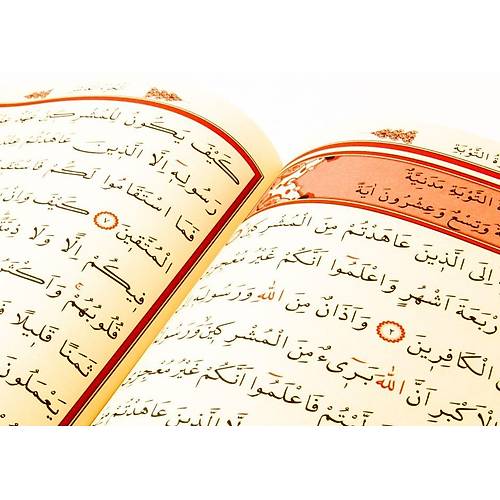 التَّوْبَةِ
التَّوْبَةِ مَدَنِيَّةٌ
وَتِسْعٌ وَعِشْرُونَ اٰيَةً
اِلَى الَّذ۪ينَ عَاهَدْتُمْ مِنَ الْمُشْرِك۪ينَ
اَرْبَعَةَ اَشْهُرٍ وَاعْلَمُٓوا اَنَّكُمْ غَيْرُ
الْكَافِر۪ينَ ٢ وَاَذَانٌ مِنَ اللّٰهِ وَرَسُولِه۪ٓ
الْاَكْبَرِ اَنَّ اللّٰهَ بَر۪ٓيءٌ مِنَ الْمُشْرِك۪ينَ وَرَسُولُهُ
فَاعْلَمُٓوا اَنَّكُمْ غَيْرُ مُعْجِزِي
الَّذ۪ينَ عَاهَدْتُمْ
كَيْفَ يَكُونُ لِلْمُشْرِك۪ينَ عَهْدٌ
رَسُولِه۪ٓ اِلَّا الَّذ۪ينَ عَاهَدْتُمْ
فَمَا اسْتَقَامُوا لَكُمْ فَاسْتَق۪يمُوا
الْمُتَّق۪ينَ ٧ كَيْفَ وَاِنْ
ف۪يكُمْ اِلًّا وَلَا ذِمَّةً
قُلُوبُهُمْ وَاَكْثَرُهُمْ
ثَمَنًا قَل۪يلًا
يَعْمَلُونَ